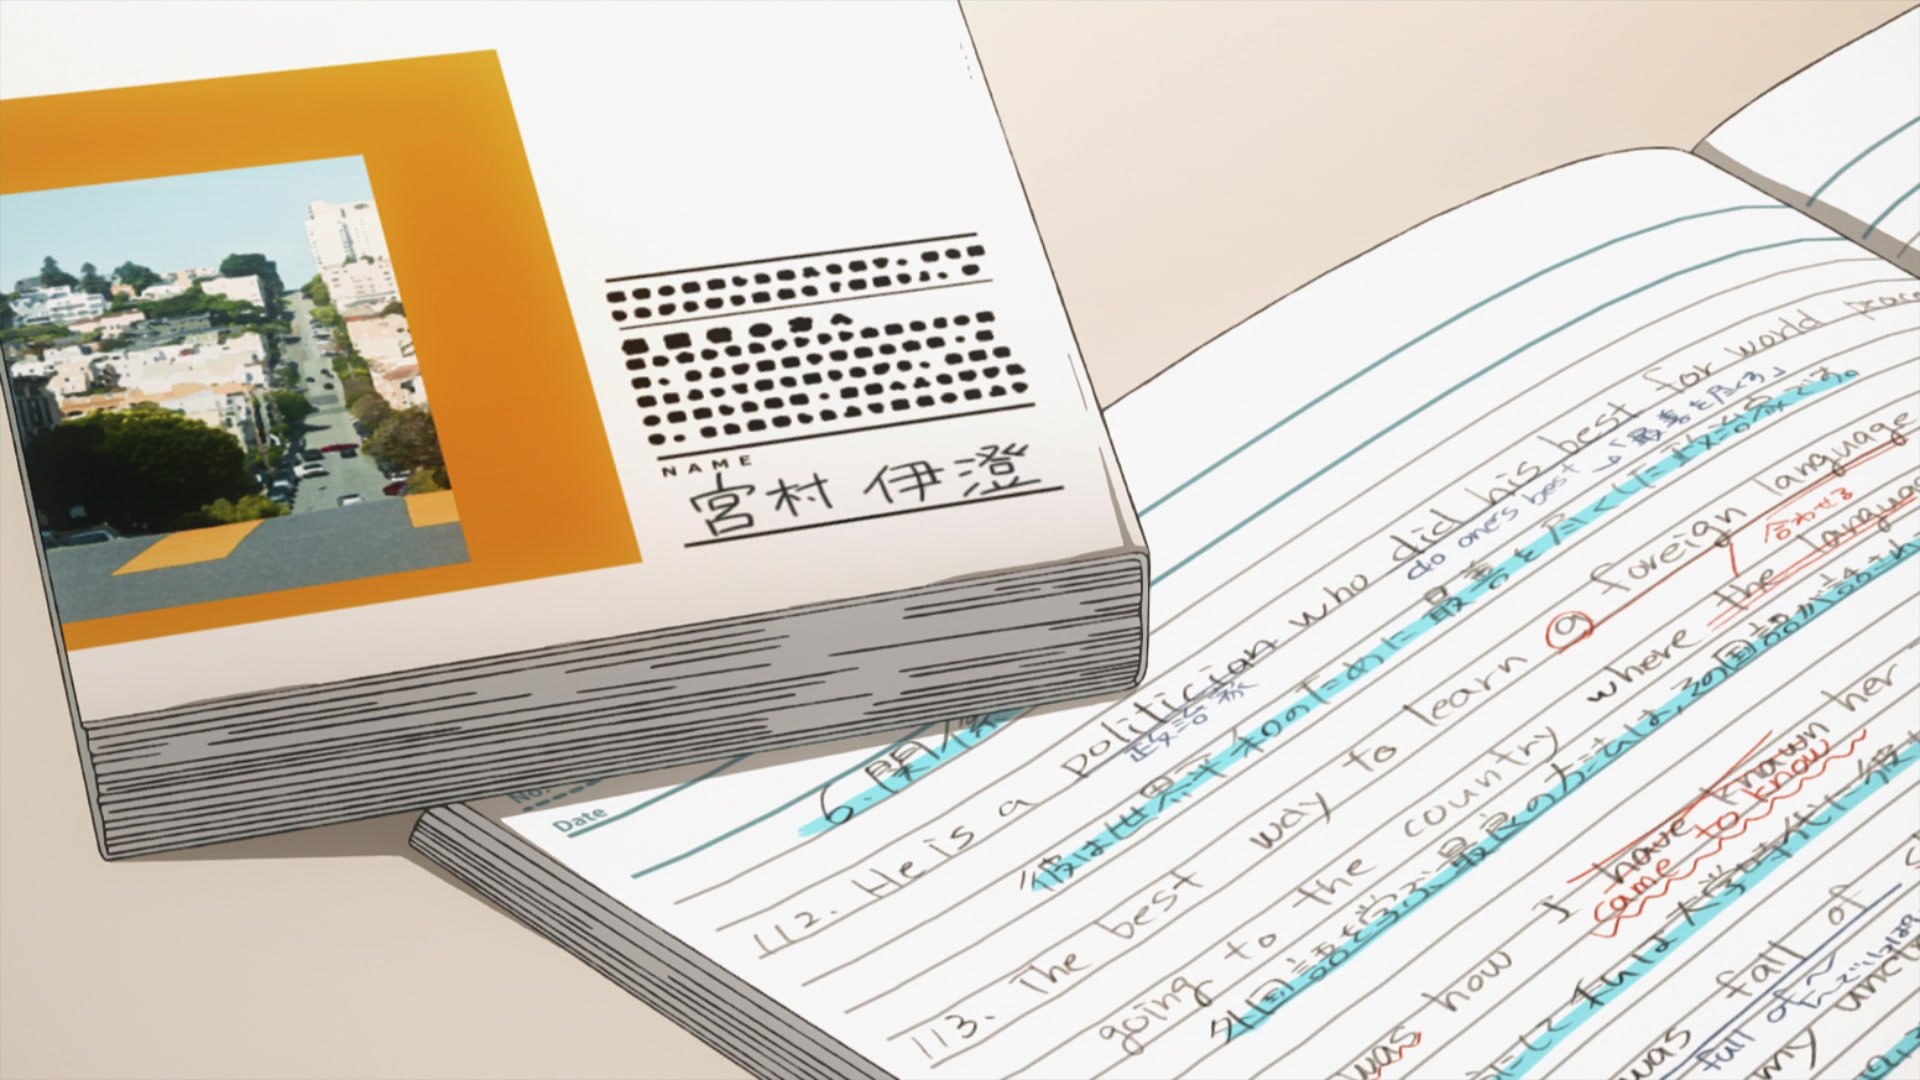 NAME
宮村 伊澄
No.
Date
6. 関係
112. He is a politician who did his best for world peace
政治家
do one's best →「最善を尽くす」
彼は世界平和のために最善を尽くした政治家である。
113. The best way to learn a foreign language
合わせる
going to the country where the language
外国語を学ぶ最良の方法は、その国語が話
was how I have known her
came to know
私は大学時代に彼
was fall of
full of～
my uncle